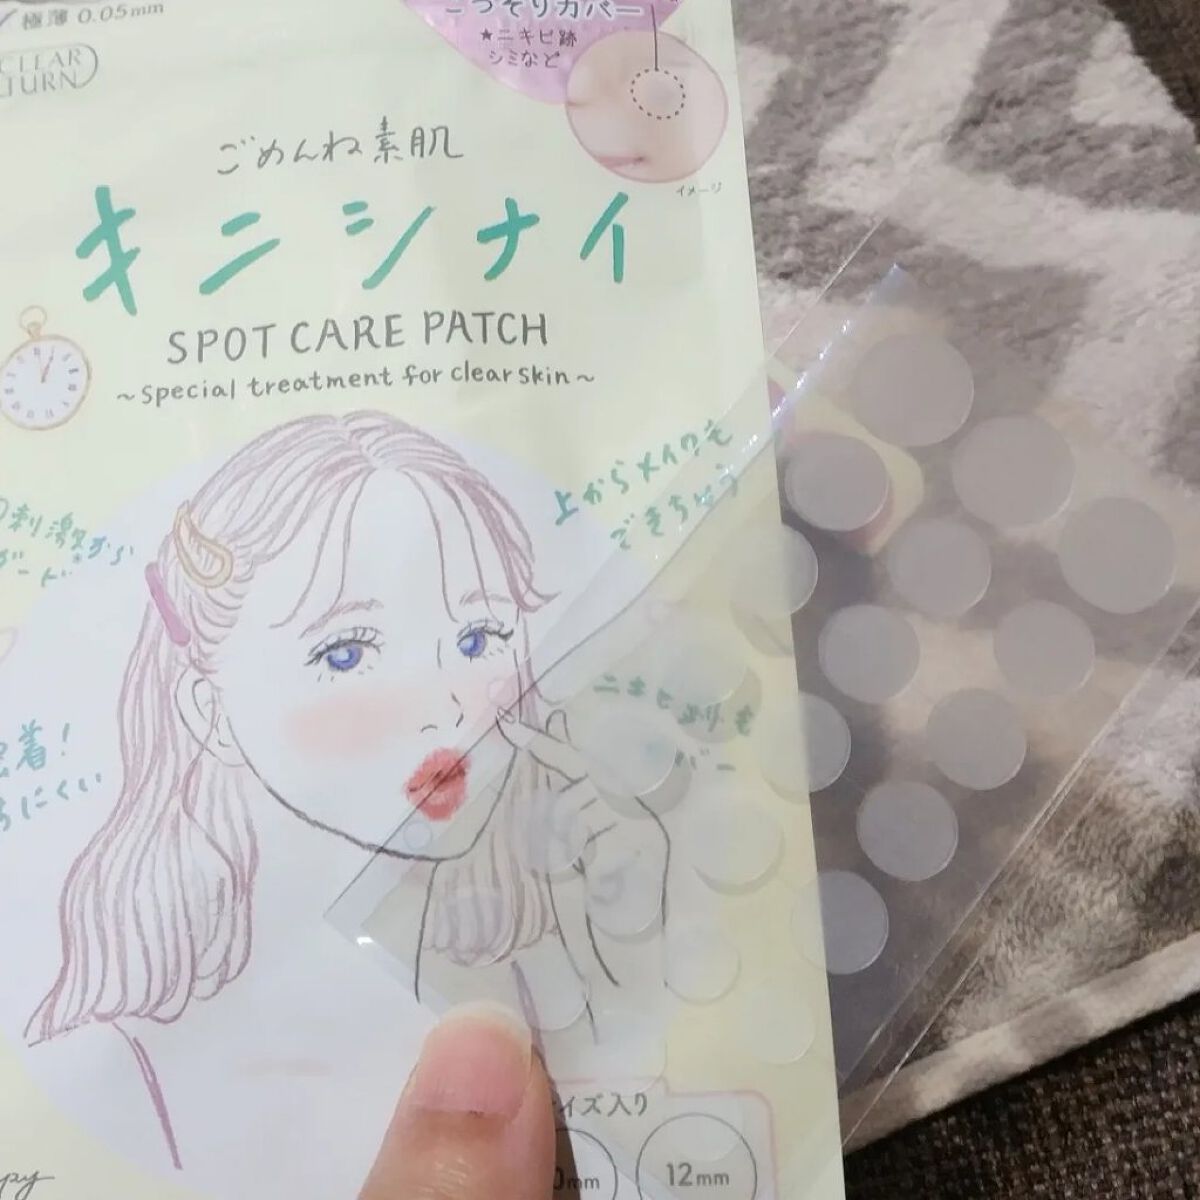 極薄 0.05mm
CLEAR
TURN
こっそりカバー
★ニキビ跡
シミなど
イメージ
ごめんね素肌
キニシナイ
SPOT CARE PATCH
~special treatment for clear skin~
上からメイクも
できちゃう
刺激から
ガード
ニキビ跡も
バー
密着!
にくい
イズ入り
0mm
12mm